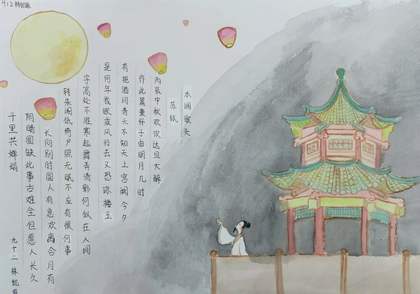 912
水调歌头
苏轼
丙辰中秋欢饮达旦大醉
作此篇兼怀子由明月几时
有把酒问青天不知天上宫阙今夕
是何年我欲乘风归去又恐琼楼玉
宇高处不胜寒起舞弄清影何似在人间
转朱阁低绮户照无眠不应有恨何事
长向别时圆人有悲欢离合月有
阴晴圆缺此事古难全但愿人长久
千里共婵娟
九十二 林